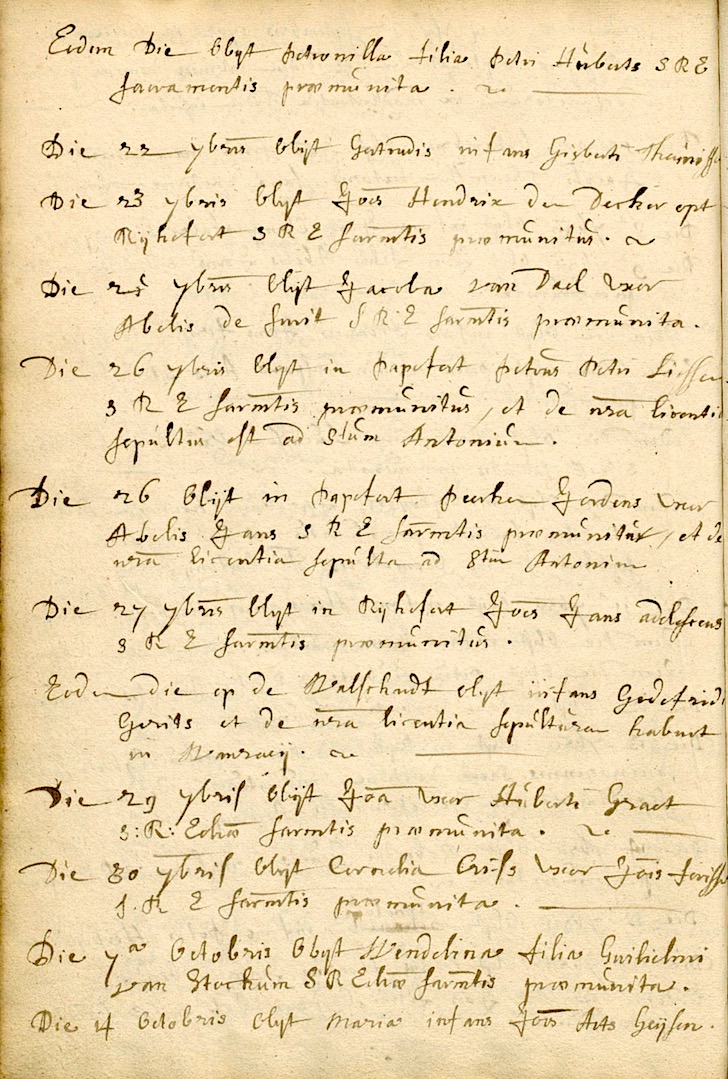 Eodem Die Obyt petronilla filia petri Huberts S R E
sacramentis præmunita .
Die 22 7bris Obijt Gertrudis infans Gisberti
Die 23 7bris Obyt Joes Hendrix den Decker opt
Rijkefort S R E sacrmtis præmunitus.
Die 25 7bris Obijt Jacoba van Dael Uxor
Abelis de Smit S R E sacrmtis præmunita.
Die 26 7bris Obyt in papefort petrus petri
S R E sacrmtis præmunitus, et de nra licentia
sepultus est ad Stum Antonium.
Die 26 Obijt in papefort peerken Jordens Uxor
Abelis Jans S R E sacrmtis præmunita, et de
nra licentia sepulta ad Stum Antonium
Die 27 7bris Obyt in Rijkefort Joes Jans adolescens
S R E sacrmtis præmunitus.
Eodem die op de Walschandt obyt infans Godefridi
Gerits et de nra licentia sepulturam habuit
in Wanraeij.
Die 29 7bris Obijt Joa Uxor Huberti Graet
S: R: Ecliæ sacrmtis præmunita.
Die 30 7bris Obyt Cornelia Uxor Jois
S. R E sacrmtis præmunita.
Die 7a Octobris Obyt Wendelina filia Guilielmi
van Stockum S R Ecliæ sacrmtis præmunita.
Die 14 Octobris Obyt Maria infans Jois Arts Heijsen.